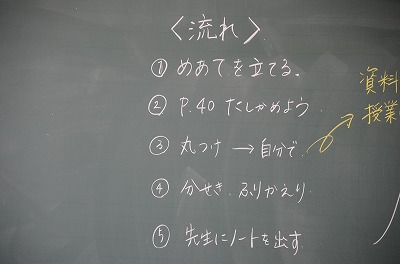 〈流れ〉
① めあてを立てる。
② P.40 たしかめよう.
③ 丸つけ → 自分で.
④ 分せき ふりかえり.
⑤ 先生にノートを出す.
資料
授業